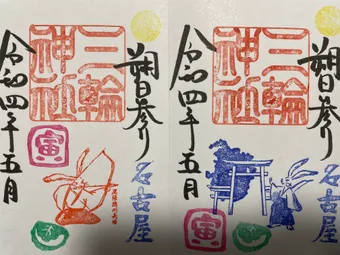 朔日参り
三輪神社
令和四年五月
寅
名古屋
朔日参り
三輪神社
令和四年五月
寅
名古屋